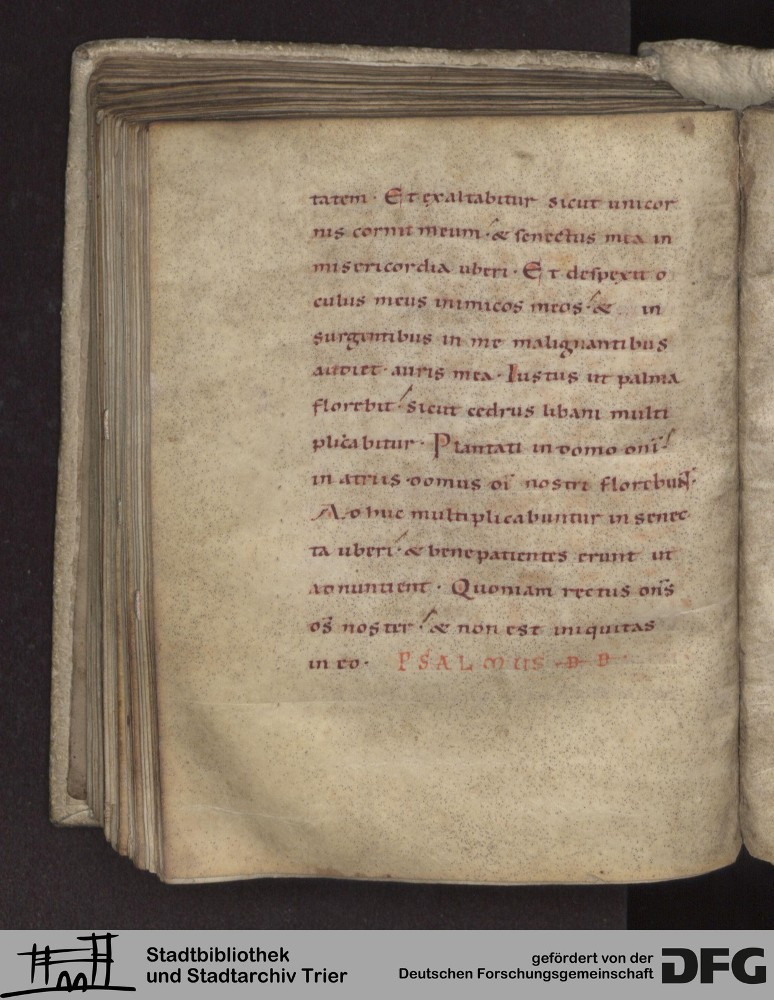 tatem · Et exaltabitur sicut unicor
nis cornu meum · & senectus mea in
misericordia uberi · Et despexit o
culus meus inimicos meos · & in
surgentibus in me malignantibus
audiet · auris mea · Iustus ut palma
florebit · sicut cedrus libani multi
plicabitur · Plantati in domo dnī
in atriis domus dī nostri florebunt ·
Adhuc multiplicabuntur in senec
ta uberi · & bene patientes erunt ut
adnuntient · Quoniam rectus dns̄
ds̄ noster · & non est iniquitas
in eo · PSALMUS · DD
Stadtbibliothek
und Stadtarchiv Trier
gefördert von der
Deutschen Forschungsgemeinschaft
DFG